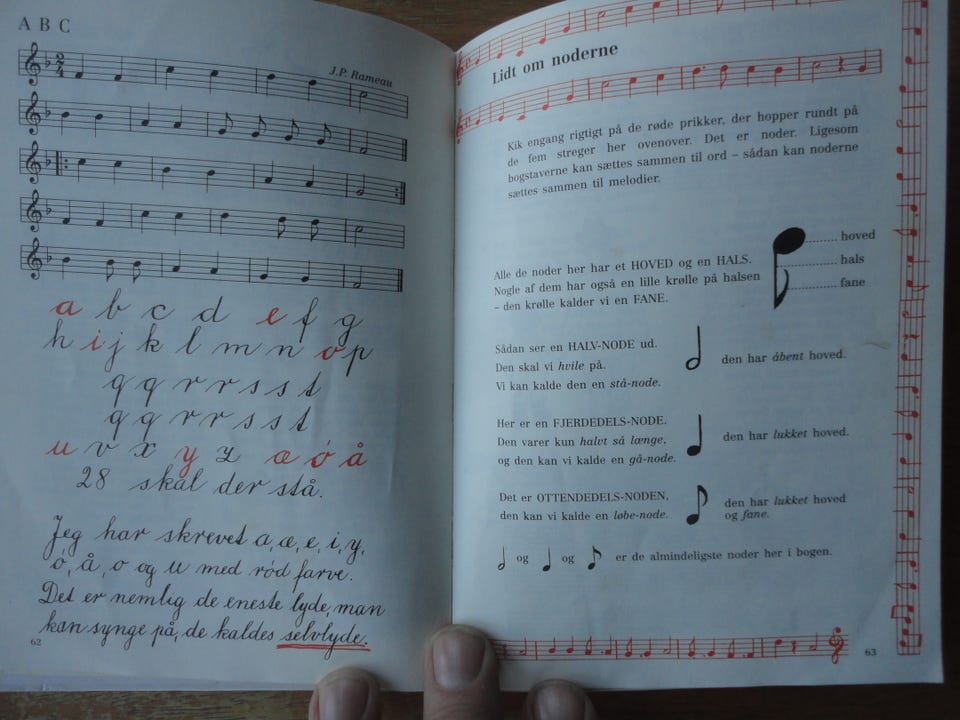 A B C
J.P. Rameau
a b c d e f g
h i j k l m n o p
q q r r s s t
q q r r s s t
u v x y z æ ø å
28 skal der stå.
Jeg har skrevet a, æ, e, i, y,
ø, å, o og u med rød farve.
Det er nemlig de eneste lyde, man
kan synge på, de kaldes selvlyde.
62
Lidt om noderne
Kik engang rigtigt på de røde prikker, der hopper rundt på
de fem streger her ovenover. Det er noder. Ligesom
bogstaverne kan sættes sammen til ord – sådan kan noderne
sættes sammen til melodier.
Alle de noder her har et HOVED og en HALS.
Nogle af dem har også en lille krølle på halsen
– den krølle kalder vi en FANE.
hoved
hals
fane
Sådan ser en HALV-NODE ud.
Den skal vi hvile på.
Vi kan kalde den en stå-node.
den har åbent hoved.
Her er en FJERDEDELS-NODE.
Den varer kun halvt så længe,
og den kan vi kalde en gå-node.
den har lukket hoved.
Det er OTTENDEDELS-NODEN,
den kan vi kalde en løbe-node.
den har lukket hoved
og fane.
og og er de almindeligste noder her i bogen.
63